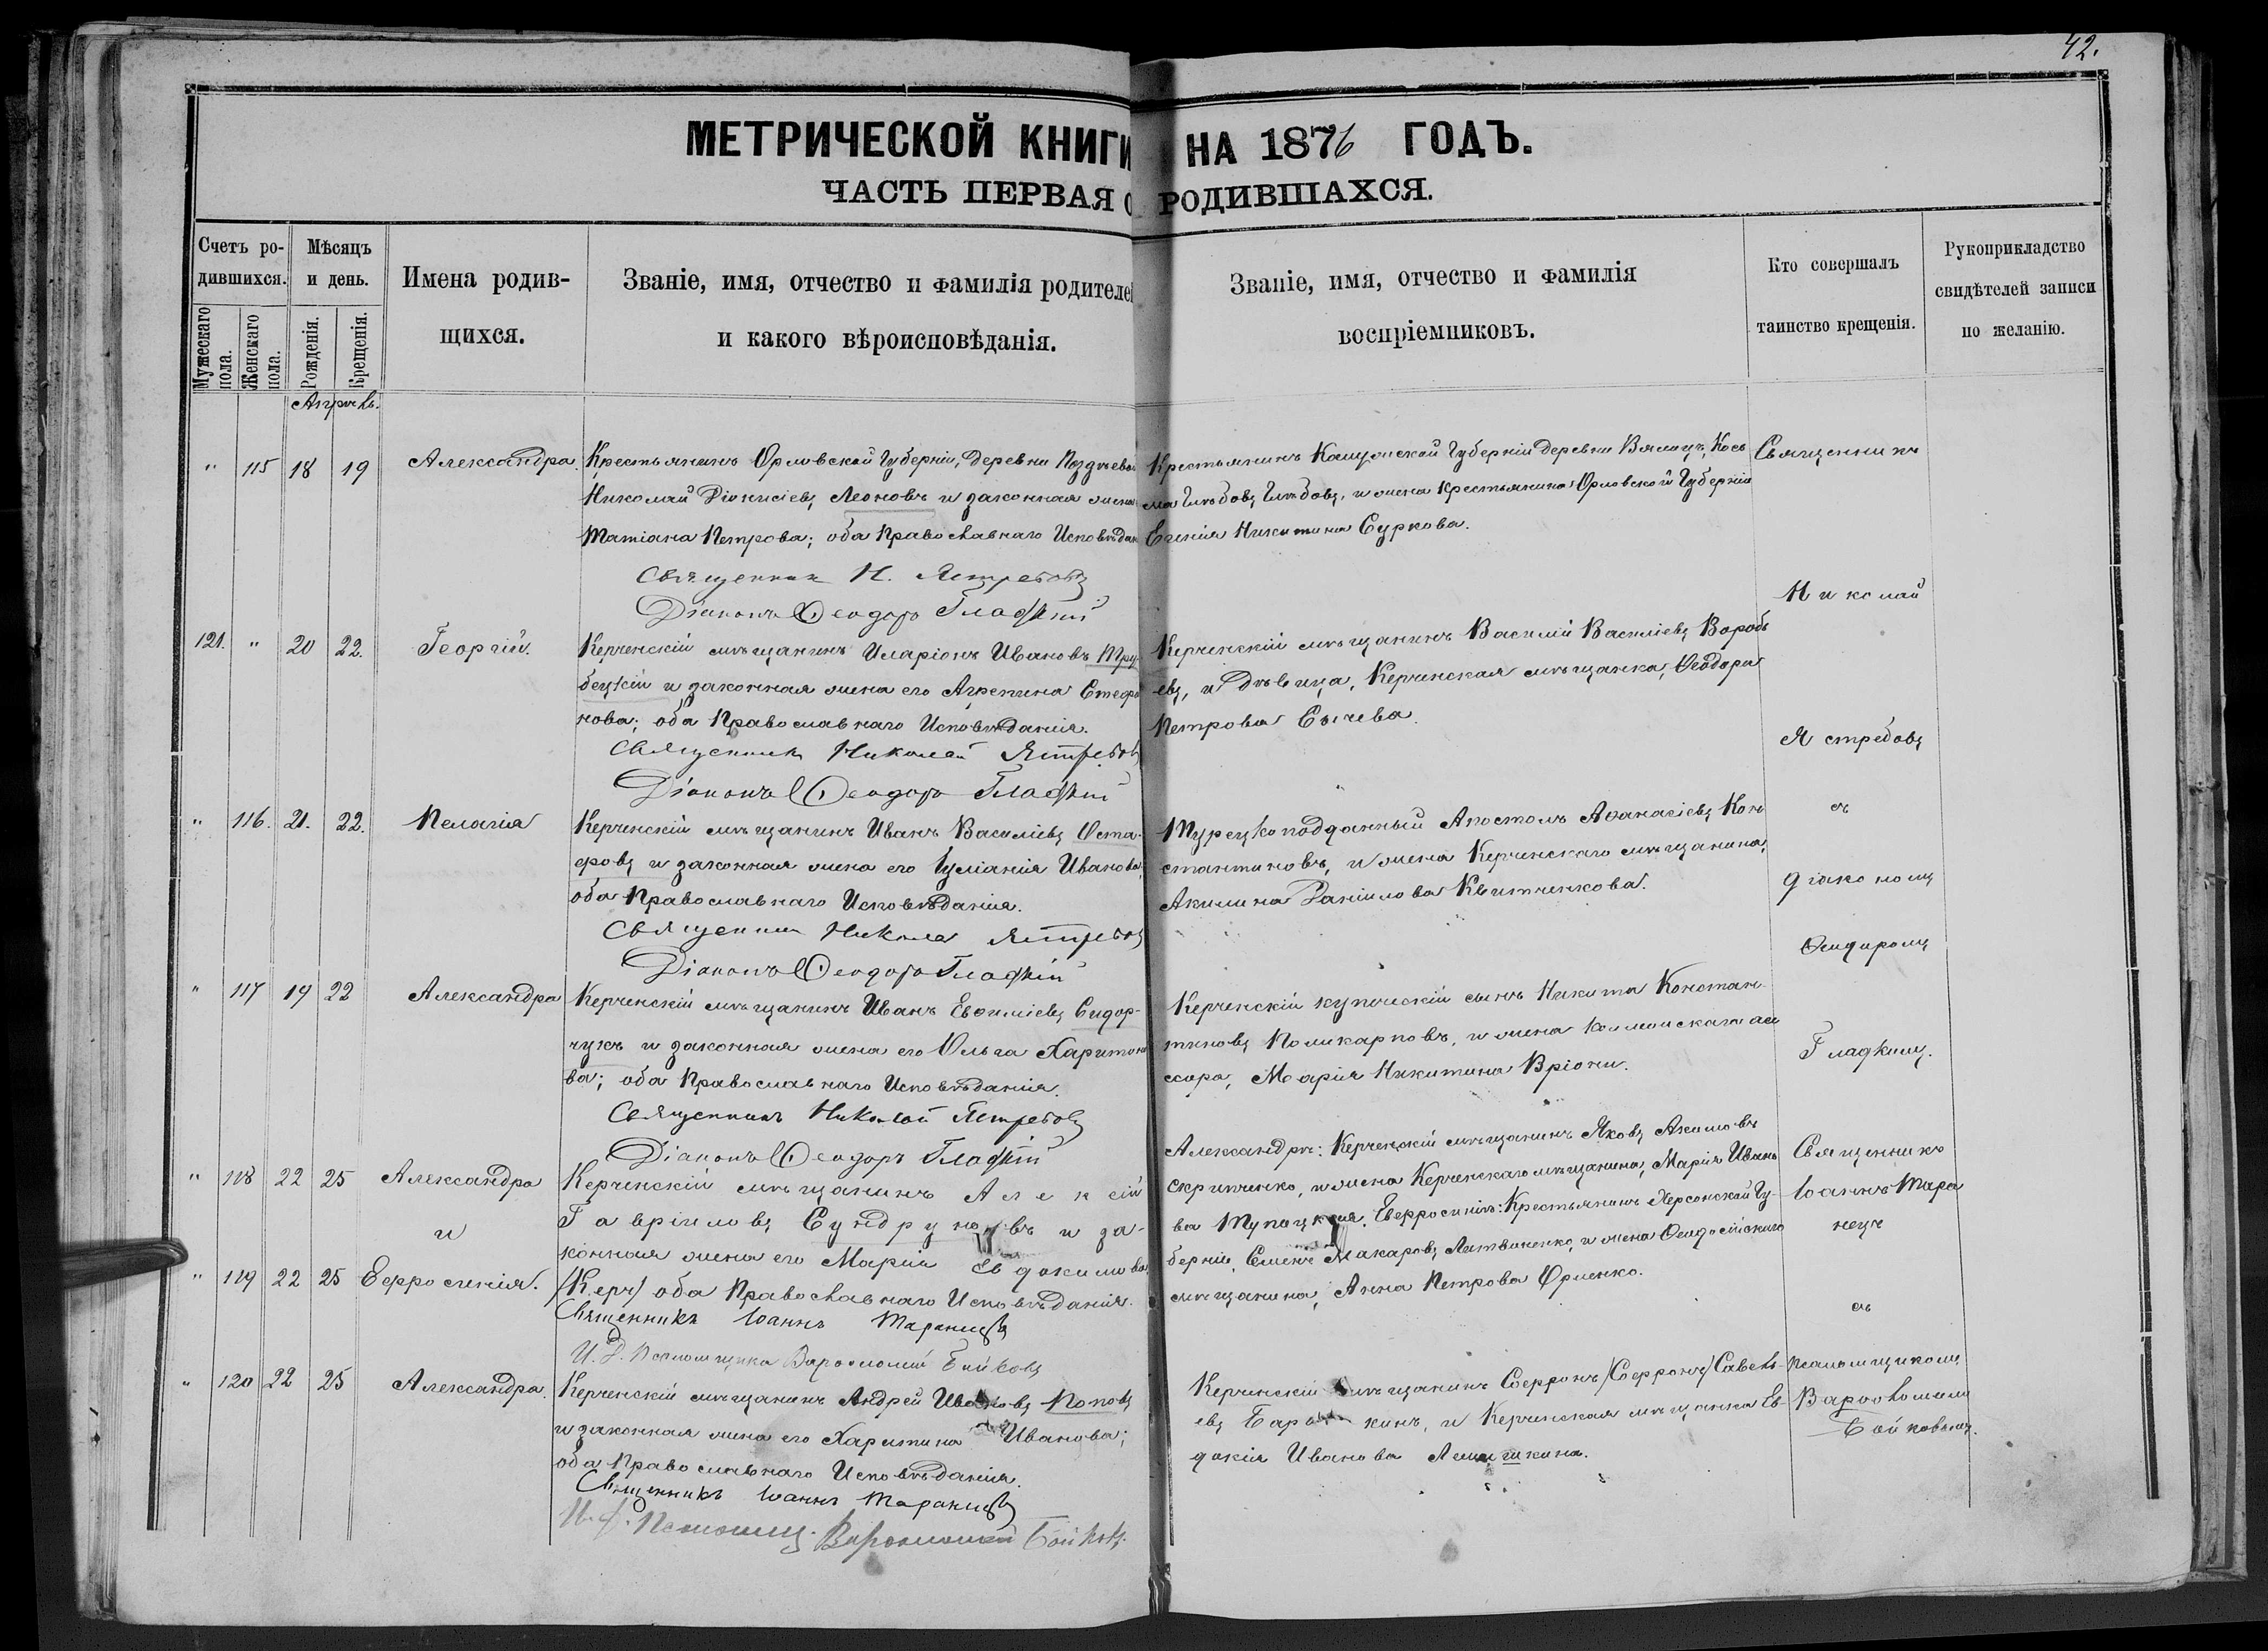 42.
МЕТРИЧЕСКОЙ КНИГИ НА 1876 ГОДЪ.
ЧАСТЬ ПЕРВАЯ О РОДИВШАХСЯ.
Счетъ ро-
дившихся.
Мужескаго пола.
Женскаго пола.
Мѣсяцъ
и день.
Рожденія.
Крещенія.
Имена родив-
щихся.
Званіе, имя, отчество и фамилія родителе
и какого вѣроисповѣданія.
Званіе, имя, отчество и фамилія
воспріемниковъ.
Кто совершалъ
таинство крещенія.
Рукоприкладство
свидѣтелей записи
по желанію.
Апрѣль.
" 115 18 19 Александра
Крестьянинъ Орловской Губерніи, деревни
Николай Діонисіевъ Леоновъ и законная жена
Татіана Петрова; оба Православнаго Исповѣдан
Священник Н. Ястребовъ
Діаконъ Ѳеодоръ Гладкій
Крестьянинъ Губерніи деревни Косъ
ма Глѣбовъ Глѣбовъ, и жена крестьянина Орловской Губерніи
Евгенія Никитина Суркова.
121. " 20 22. Георгій.
Керченскій мѣщанинъ Иларіонъ Ивановъ Тру-
бецкій и законная жена его Агрепина Стефа
нова; оба Православнаго Исповѣданія.
Священникъ Николай Ястребовъ
Діаконъ Ѳеодоръ Гладкій
Керченскій мѣщанинъ Василій Василіевъ Воробь
евъ, и дѣвица, Керченская мѣщанка, Ѳеодора
Петрова Сычева.
" 116. 21. 22. Пелагія
Керченскій мѣщанинъ Иванъ Василіевъ Оста-
фовъ и законная жена его Іуліанія Иванова,
оба Православнаго Исповѣданія.
Священник Николай Ястребовъ
Діаконъ Ѳеодоръ Гладкій
Турецкоподданный Апостолъ Аѳанасіевъ Кон
стантиновъ, и жена Керченскаго мѣщанина,
Акилина Даніилова Квитченкова.
" 117 19 22 Александра
Керченскій мѣщанинъ Иванъ Евѳиміевъ Сидор-
чукъ и законная жена его Ольга Харитоно
ва; оба Православнаго Исповѣданія.
Священникъ Николай Ястребовъ
Діаконъ Ѳеодоръ Гладкій
Керченскій купеческій сынъ Никита Констан-
тиновъ Поликарповъ, и жена ас
сора, Марія Никитина Вріони.
" 118 22 25 Александра
и
" 119 22 25 Ефросинія.
Керченскій мѣщанинъ Алексій
Гавріиловъ Сундруковъ и за-
конная жена его Марія Евдокимова
/Керч/ оба Православнаго Исповѣданія.
Священникъ Іоаннъ Таранецъ
И. д. Псаломщика Варѳоломей Бойковъ
Александры: Керченскій мѣщанинъ Яковъ Акимовъ
Скрипченко, и жена Керченскаго мѣщанина, Марія Ивано
ва Ефросиніи: Крестьянинъ Херсонской Гу-
берніи, Семенъ Макаровъ Литвиненко, и жена Ѳеодосійскаго
мѣщанина, Анна Петрова Орленко.
" 120 22 25 Александра.
Керченскій мѣщанинъ Андрей Ивановъ Поповъ
и законная жена его Харитина Иванова;
оба Православнаго Исповѣданія.
Священникъ Іоаннъ Таранецъ
И. д. Псаломщ. Варѳоломей Бойковъ
Керченскій мѣщанинъ Софронъ /Софронъ/ Савель-
евъ и Керченская мѣщанка Ев-
докія Иванова
Священникъ
Николай
Ястребовъ
съ
діакономъ
Ѳеодоромъ
Гладкимъ.
Священникъ
Іоаннъ Тара
нецъ
съ
псаломщикомъ
Варѳоломеемъ
Бойковымъ.